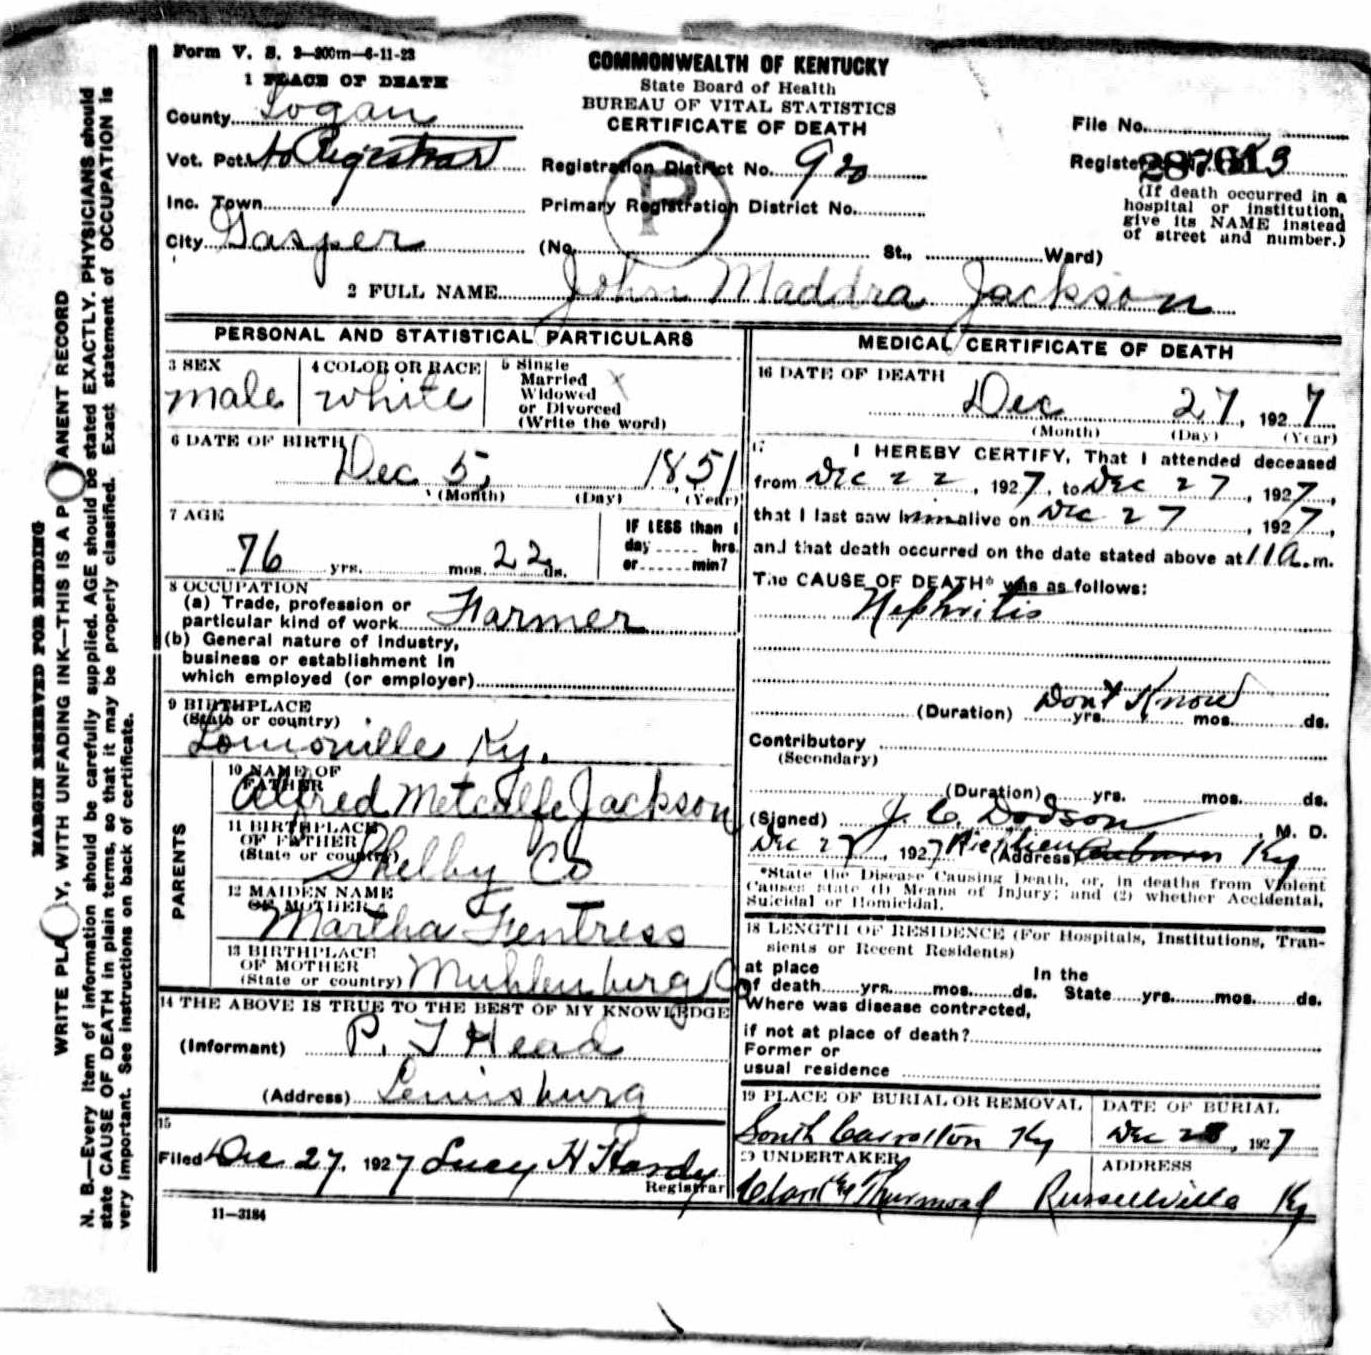 Form V. S. 2—300m—6-11-23
COMMONWEALTH OF KENTUCKY
State Board of Health
BUREAU OF VITAL STATISTICS
CERTIFICATE OF DEATH
1 PLACE OF DEATH
County Logan
Vot. Pct. to Registrar
Inc. Town
City Gasper
Registration District No. 920
Primary Registration District No.
(No. St., Ward)
P
File No.
Registered
(If death occurred in a
hospital or institution,
give its NAME instead
of street and number.)
2 FULL NAME John Maddra Jackson
PERSONAL AND STATISTICAL PARTICULARS
3 SEX
male
4 COLOR OR RACE
white
5 Single
Married X
Widowed
or Divorced
(Write the word)
6 DATE OF BIRTH
Dec 5, 1851
(Month) (Day) (Year)
7 AGE
76 yrs. mos. 22 ds.
IF LESS than 1
day hrs.
or min?
8 OCCUPATION
(a) Trade, profession or
particular kind of work Farmer
(b) General nature of industry,
business or establishment in
which employed (or employer)
9 BIRTHPLACE
(State or country)
Ky.
10 NAME OF
FATHER
Alfred Metcalfe Jackson
11 BIRTHPLACE
OF FATHER
(State or country)
Shelby Co
12 MAIDEN NAME
OF MOTHER
Martha Fentress
13 BIRTHPLACE
OF MOTHER
(State or country) Muhlenburg Co
PARENTS
14 THE ABOVE IS TRUE TO THE BEST OF MY KNOWLEDGE
(Informant) P. T Head
(Address) Lewisburg
15
Filed Dec 27, 1927 Lucy H Hardy
Registrar
11—3184
MEDICAL CERTIFICATE OF DEATH
16 DATE OF DEATH
Dec 27, 1927
(Month) (Day) (Year)
17
I HEREBY CERTIFY, That I attended deceased
from Dec 22, 1927, to Dec 27, 1927,
that I last saw him alive on Dec 27, 1927,
and that death occurred on the date stated above at 11 a.m.
The CAUSE OF DEATH* was as follows:
Nephritis
Don't Know
(Duration) yrs. mos. ds.
Contributory
(Secondary)
(Duration) yrs. mos. ds.
(Signed) J. C. Dodson, M. D.
Dec 27, 1927 (Address) Auburn Ky
*State the Disease Causing Death, or, in deaths from Violent
Causes state (1) Means of Injury; and (2) whether Accidental,
Suicidal or Homicidal.
18 LENGTH OF RESIDENCE (For Hospitals, Institutions, Tran-
sients or Recent Residents)
at place In the
of death yrs. mos. ds. State yrs. mos. ds.
Where was disease contracted,
if not at place of death?
Former or
usual residence
19 PLACE OF BURIAL OR REMOVAL
South Carrollton Ky
DATE OF BURIAL
Dec 28, 1927
20 UNDERTAKER
Clark & Thurmond
ADDRESS
Russellville Ky
MARGIN RESERVED FOR BINDING
WRITE PLAINLY, WITH UNFADING INK—THIS IS A PERMANENT RECORD
N. B.—Every item of information should be carefully supplied. AGE should be stated EXACTLY. PHYSICIANS should
state CAUSE OF DEATH in plain terms, so that it may be properly classified. Exact statement of OCCUPATION is
very important. See instructions on back of certificate.